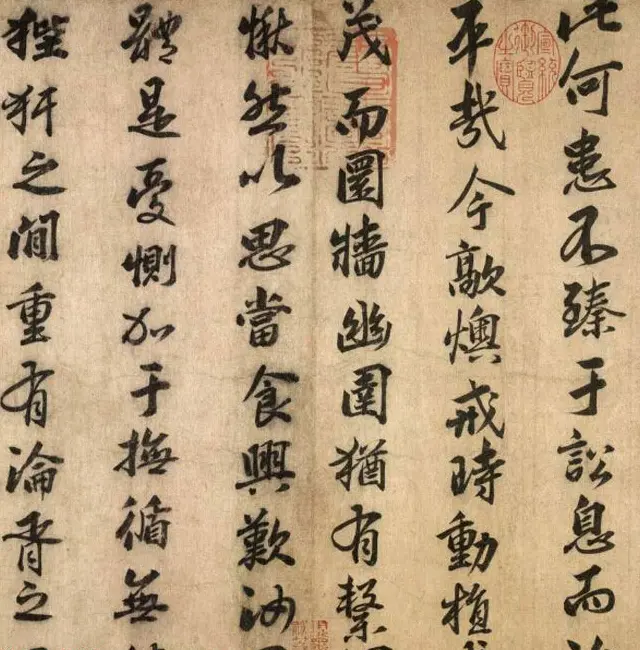 此何患不臻于訟息而
平哉今歊燠戒時動植
茂而圜牆幽圄猶有繫
愀然以思當食興歎
體是憂惻加于撫循無
狴犴之間重有淪胥之